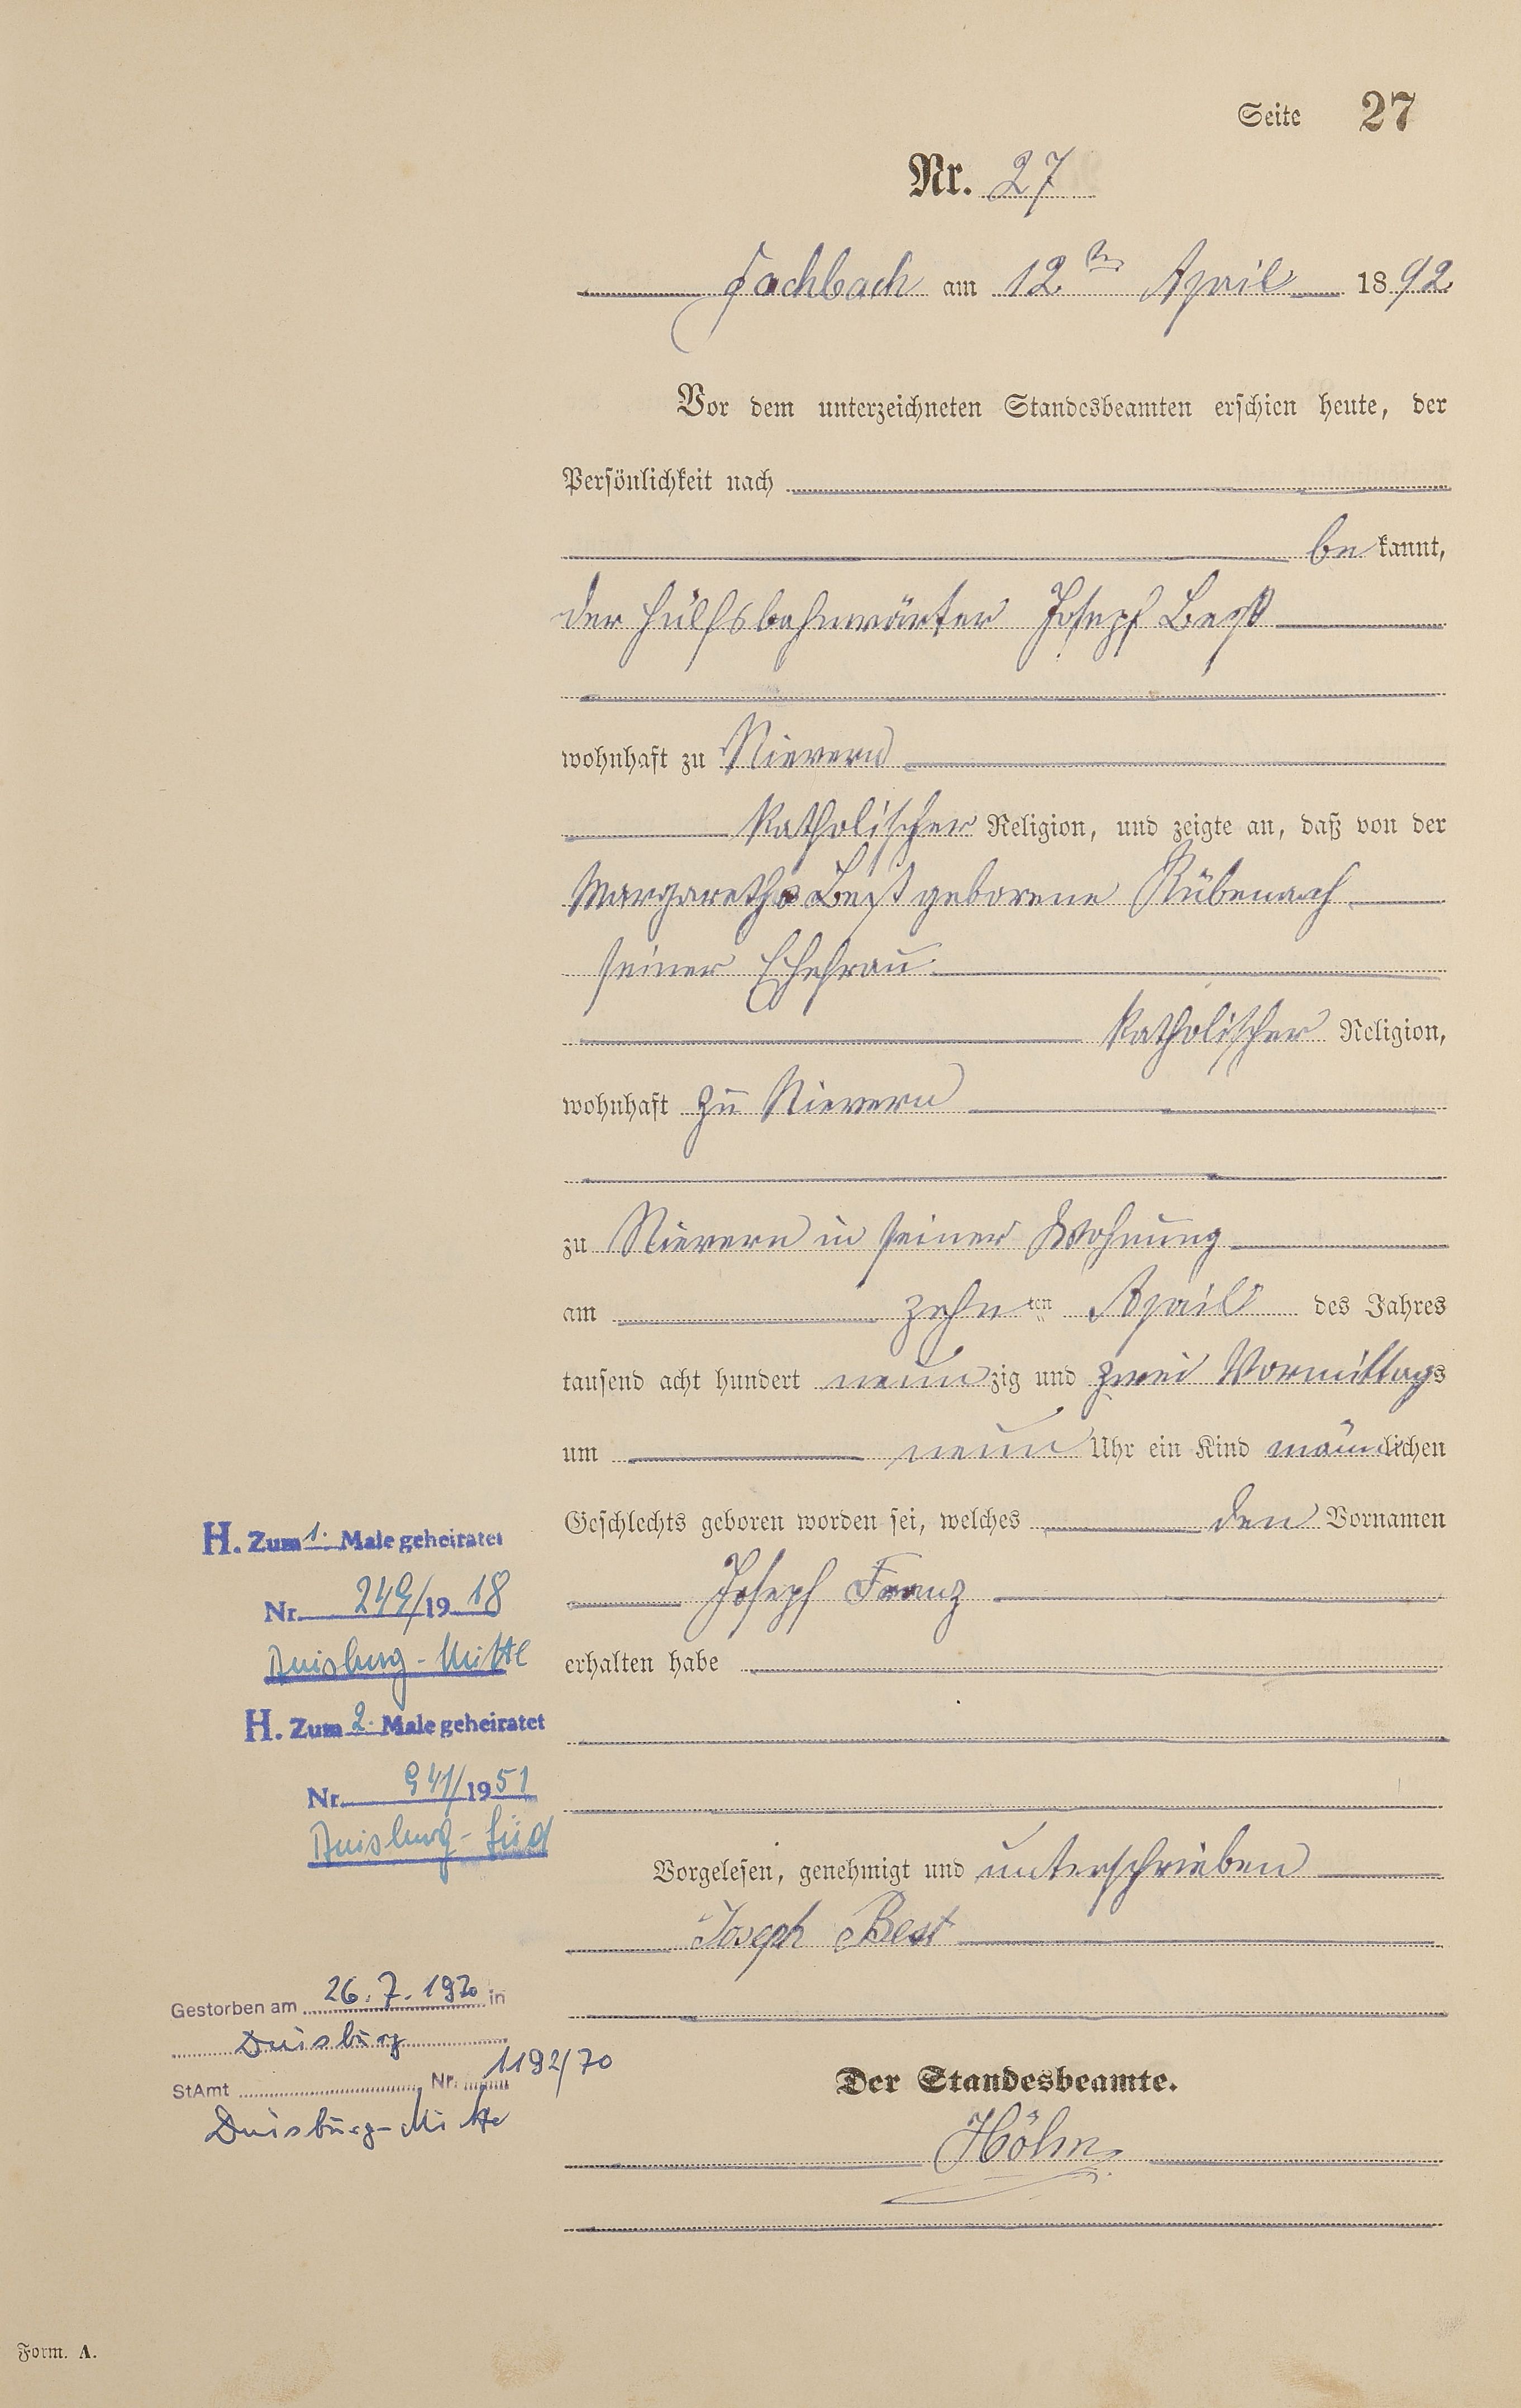 Seite 27
Nr. 27
Fachbach am 12ten April 1892
Vor dem unterzeichneten Standesbeamten erschien heute, der
Persönlichkeit nach
be kannt,
der Hülfsbahnwärter Joseph Best
wohnhaft zu Nievern
katholischer Religion, und zeigte an, daß von der
Margaretha Best geborene Rübenach
seiner Ehefrau
katholischer Religion,
wohnhaft zu Nievern
zu Nievern in seiner Wohnung
am zehn ten April des Jahres
tausend acht hundert neun zig und zwei Vormittags
um neun Uhr ein Kind männlichen
Geschlechts geboren worden sei, welches den Vornamen
Joseph Franz
erhalten habe
Vorgelesen, genehmigt und unterschrieben
Joseph Best
Der Standesbeamte.
Höhn
H. Zum 1. Male geheiratet
Nr. 249/1918
Duisburg-Mitte
H. Zum 2. Male geheiratet
Nr. 941/1951
Duisburg-Süd
Gestorben am 26.7.1970 in
Duisburg
StAmt Nr. 1192/70
Duisburg-Mitte
Form. A.